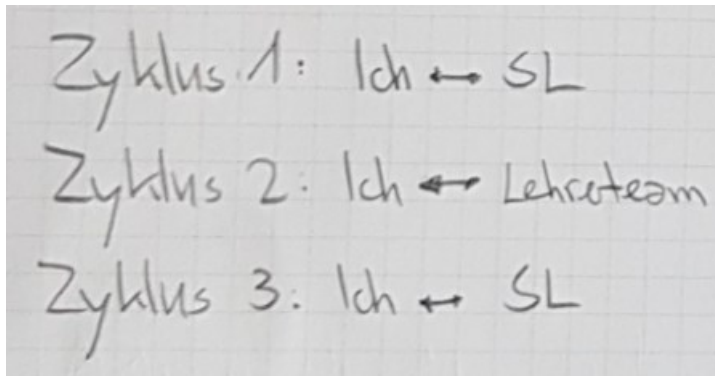 Zyklus 1: Ich ↔ SL
Zyklus 2: Ich ↔ Lehrerteam
Zyklus 3: Ich ↔ SL